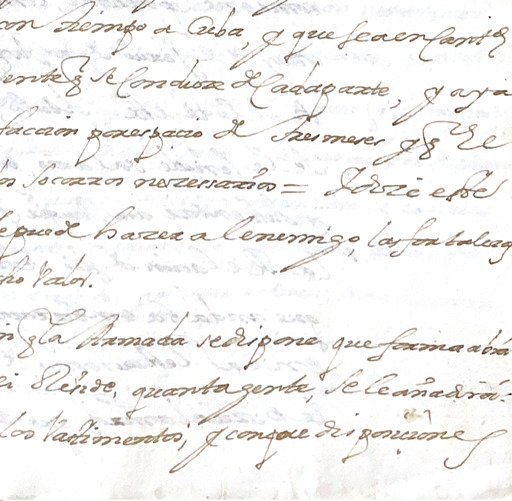 con tiempo a Cuba, y que sea en cantd
dente q se conduxe de Cada parte, y aya
faccion por espacio de tres meses y q se
los socorros necessarios = Y dize este
se puede hazer a lenemigo, las fortaleza
cho Valor.
in q la Armada se dispone que forma abrá
ei Rinde, quanta gente, se le añadirá:
los Vastimentos, y con que disponçiones